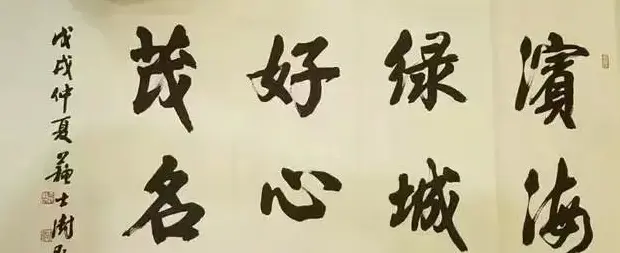 濱海
绿城
好心
茂名
戊戌仲夏蘇士澍